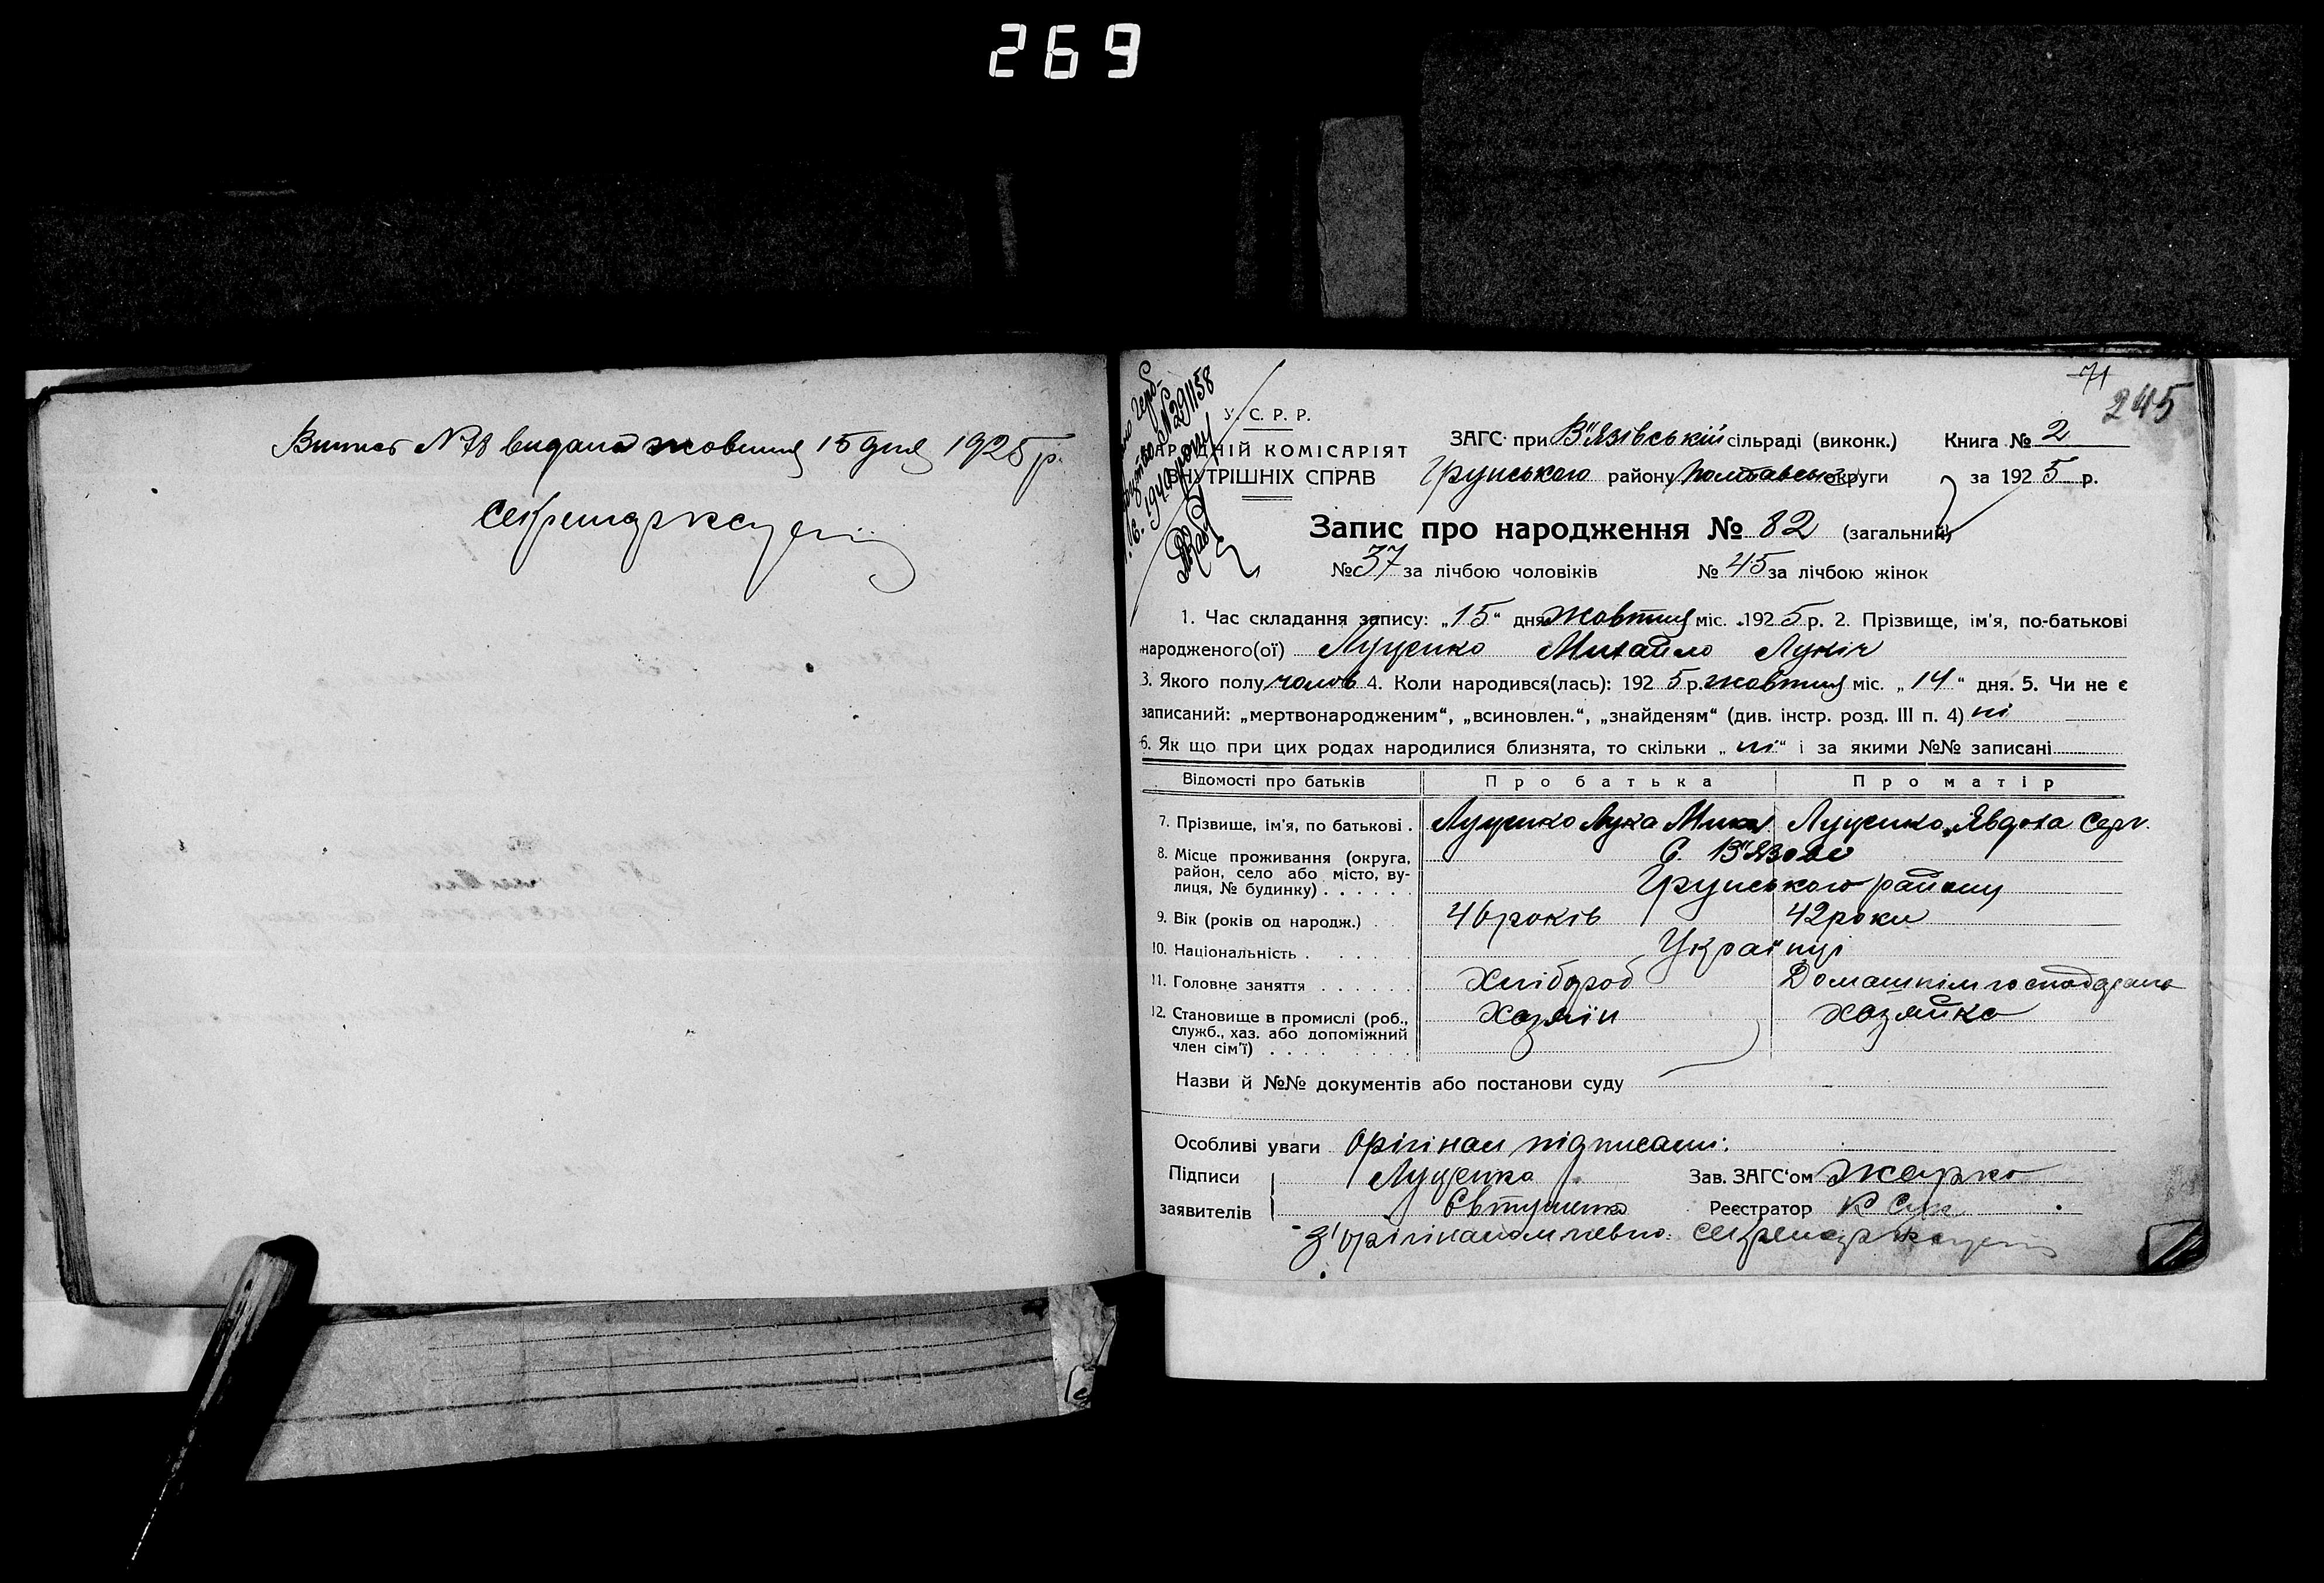 269
Випись № 78 видана жовтня 15 дня 1925 р.
Секретар
71
245
№ 291158
1940 року
У. С. Р. Р.
НАРОДНІЙ КОМІСАРІЯТ
ВНУТРІШНІХ СПРАВ
ЗАГС при В"язівській сільраді (виконк.) Книга № 2
Грунського району Полтавської округи за 1925 р.
Запис про народження № 82 (загальний)
№ 37 за лічбою чоловіків № 45 за лічбою жінок
1. Час складання запису: „15“ дня жовтня міс. 1925 р. 2. Прізвище, ім'я, по-батькові
народженого(ої) Луценко Михайло Лукіч
3. Якого полу чолов 4. Коли народився(лась): 1925 р. жовтня міс. „14“ дня. 5. Чи не є
записаний: „мертвонародженим“, „всиновлен.“, „знайденям“ (див. інстр. розд. III п. 4) ні
6. Як що при цих родах народилися близнята, то скільки „ні“ і за якими №№ записані
Відомості про батьків Про батька Про матір
7. Прізвище, ім'я, по батькові . Луценко Лука Мик. Луценко Явдоха Серг.
8. Місце проживання (округа, район, село або місто, вулиця, № будинку) . . . . . С. В"язове
Грунського району
9. Вік (років од народж.) . . 46 років 42 роки
10. Національність . . . . . . Українці
11. Головне заняття . . . . . . Хлібороб Домашнім господарс
12. Становище в промислі (роб., служб., хаз. або допоміжний член сім'ї) . . . . . . . . Хазяїн Хазяйка
Назви й №№ документів або постанови суду
Особливі уваги Орігінал підписали:
Підписи Луценко Зав. ЗАГС'ом Жарко
заявителів Євтушенко Реєстратор К Сук
З орігіналом певно: Секретар